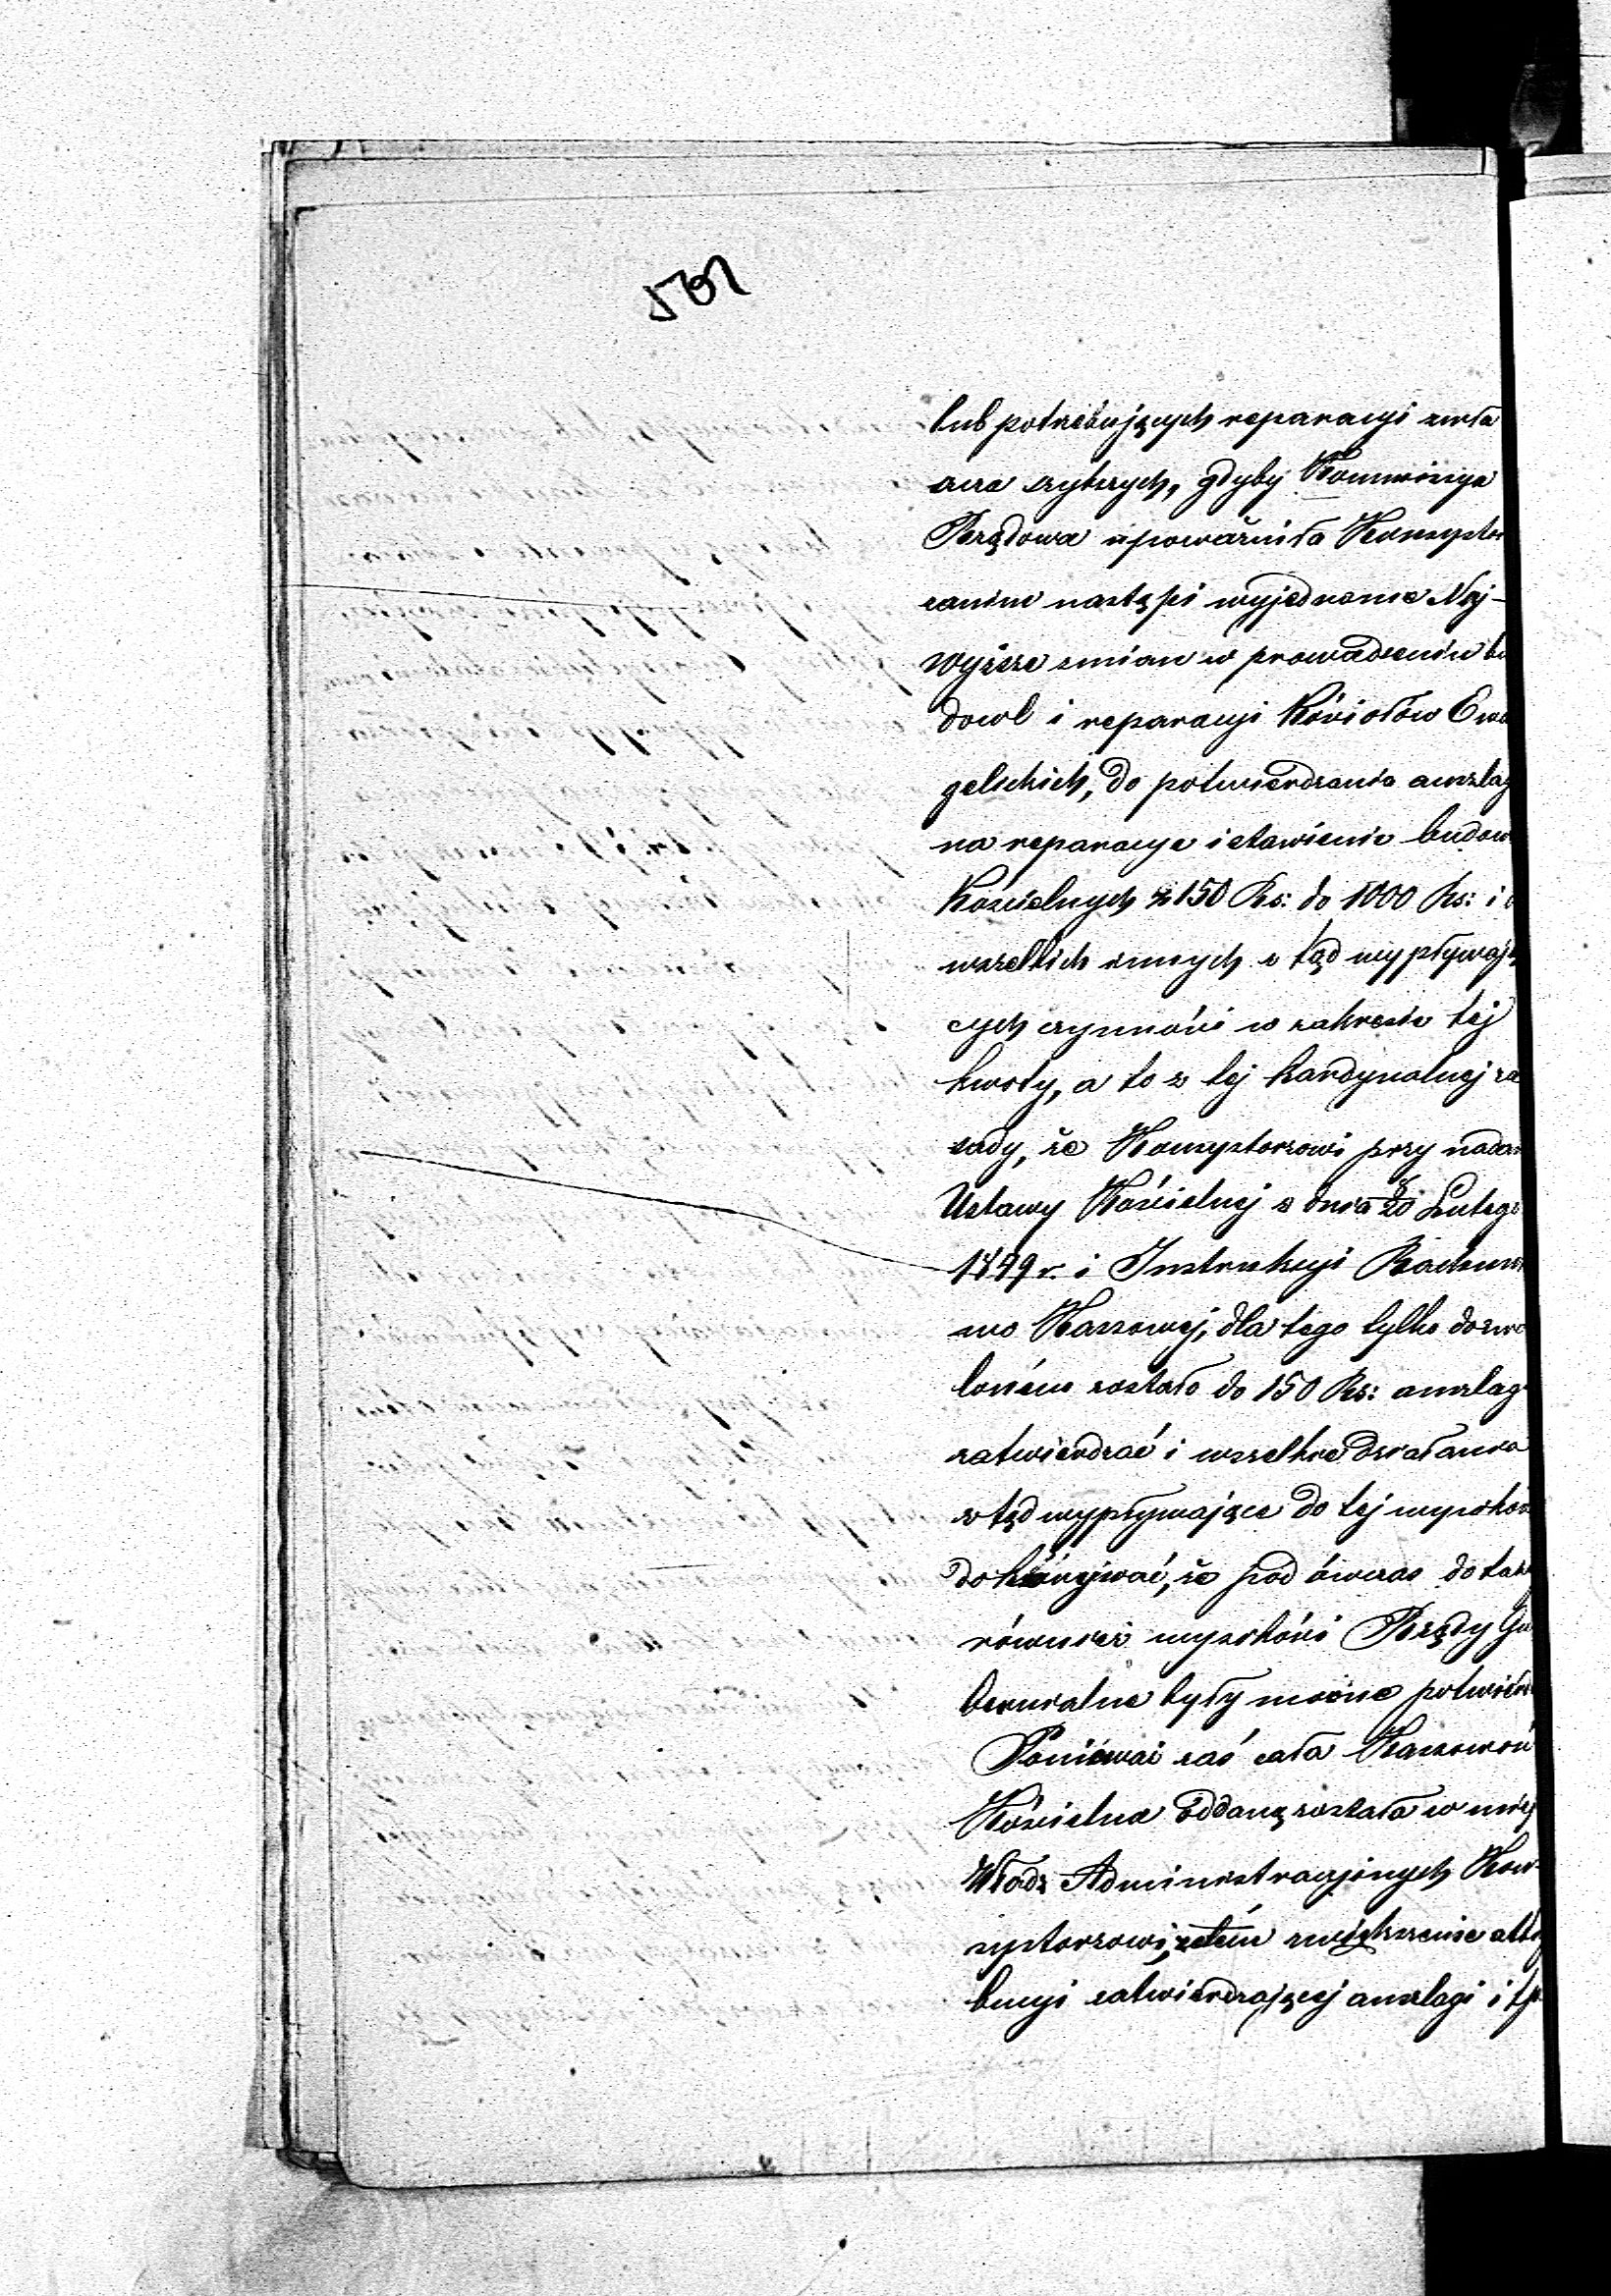 lub potrzebujących reparacyi zwła
szcza szybszych, gdyby Kommissya
Rządowa upoważniła Konsystor
zanim nastąpi wyjednanie Naj-
wyższe zmian w prowadzeniu bu
dowl i reparacyi Kościołów Ewa
gelickich, do potwierdzania anszlag
na reparacye i stawienie budow
Kościelnych z 150 Rs: do 1000 Rs: i
wszelkich innych z tąd wypływają
cych czynności w zakresie tej
kwoty, a to z tej kardynalnej za
sady, że Konsystorzowi przy nadan
Ustawy Kościelnej z dnia 8/20 Lutego
1849 r. i Instrukcyi Rachunko
wo Kassowej, dla tego tylko dozwo
loném zostało do 150 Rs: anszlag
zatwierdzać i wszelkie działania
z tąd wypływające do tej wysokoś
dokonywać, że pod ówczas do takiej
również wysokości Rządy Gu
bernialne były mocne potwierdz
Ponieważ zaś cała Kassowość
Kościelna oddaną została w miej
Władz Administracyjnych Kon-
systorzowi, zatém zwiększenie attry
bucyi zatwierdzającej anszlagi i t p